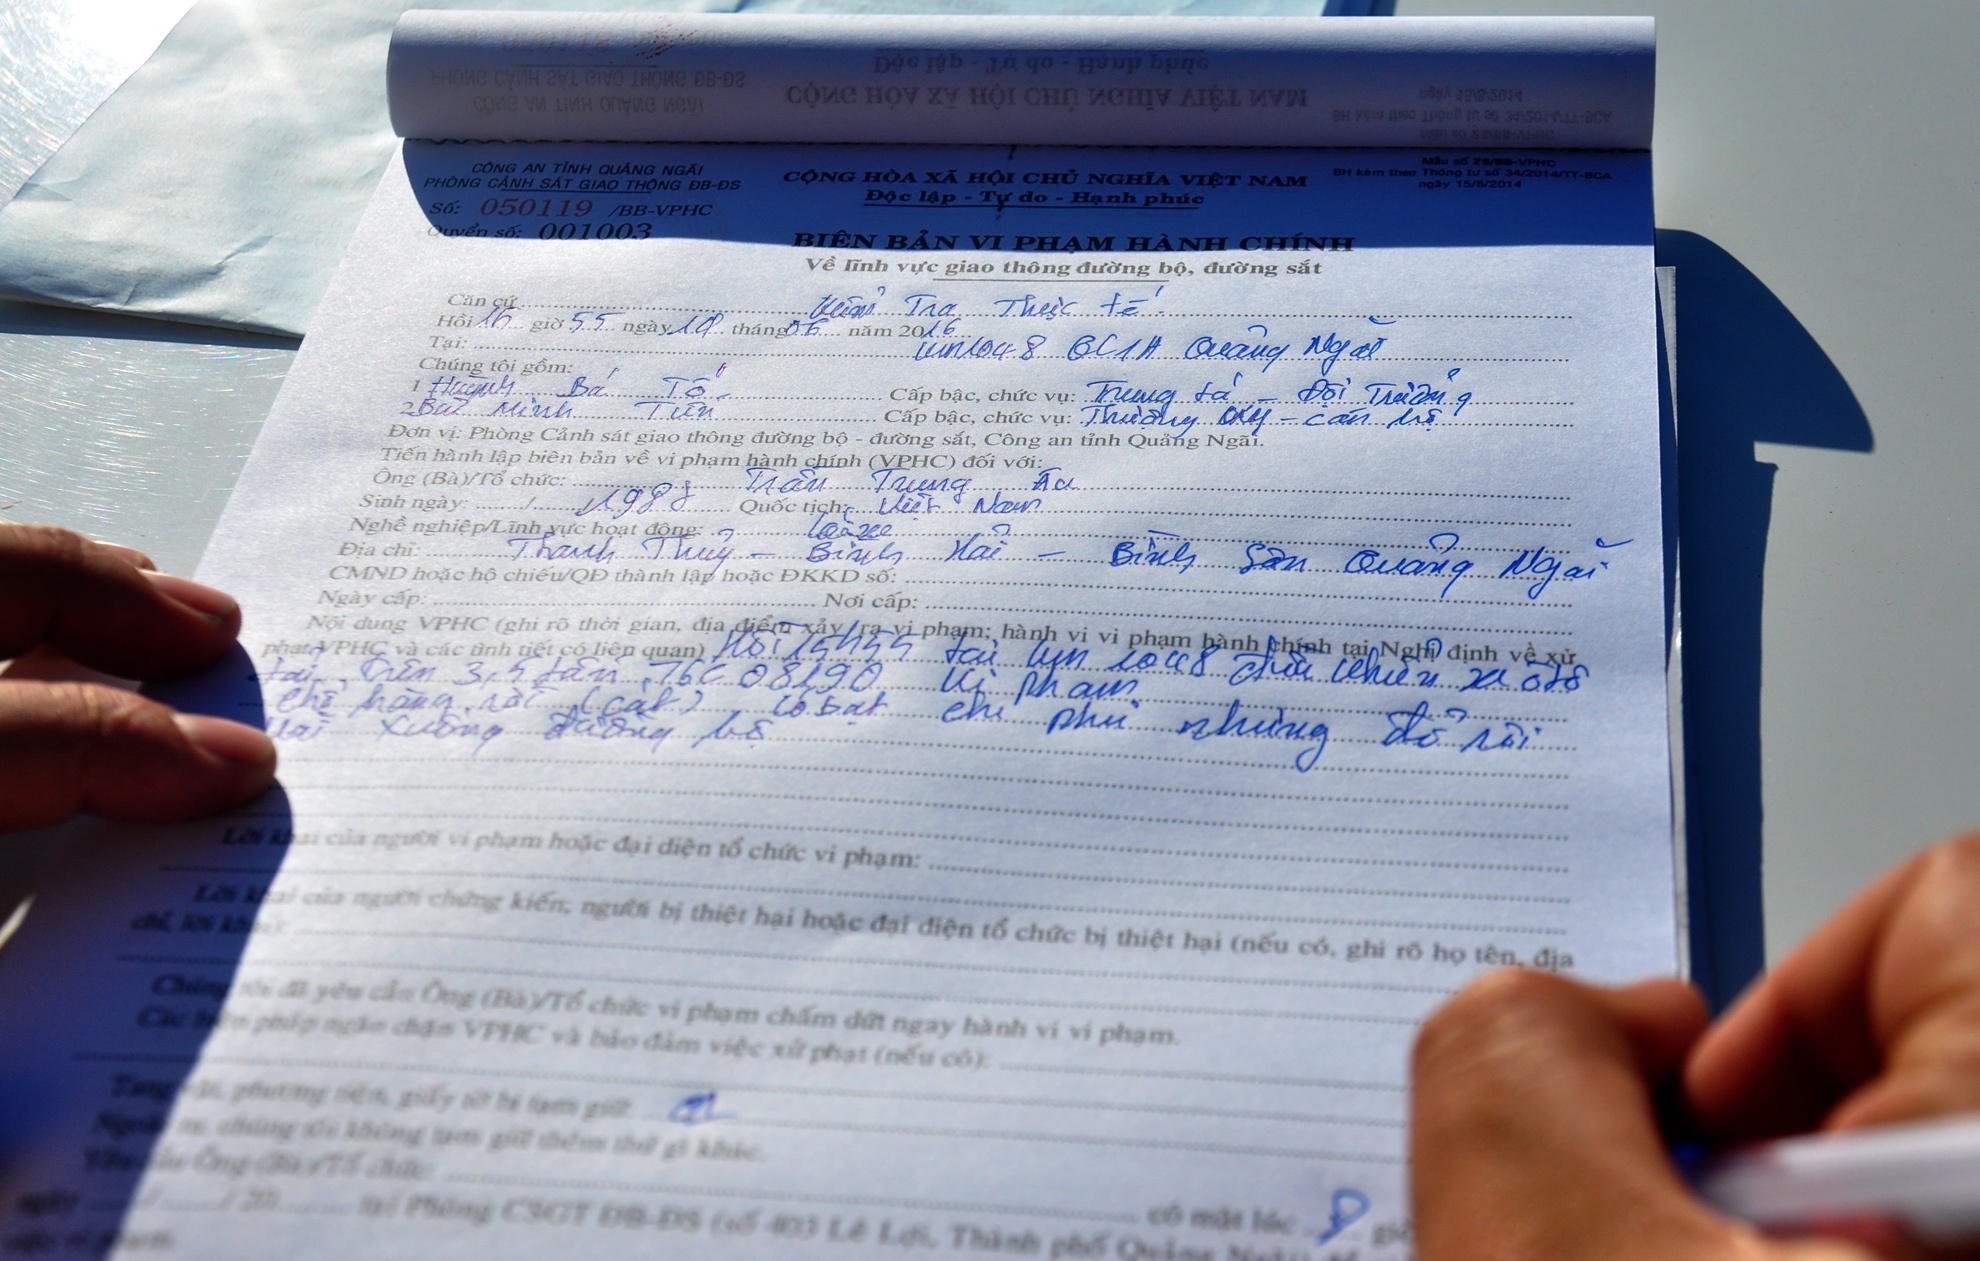 CÔNG AN TỈNH QUẢNG NGÃI
PHÒNG CẢNH SÁT GIAO THÔNG ĐB-ĐS
Số: 050119 /BB-VPHC
Quyển số: 001003
CỘNG HÒA XÃ HỘI CHỦ NGHĨA VIỆT NAM
Độc lập - Tự do - Hạnh phúc
Mẫu số 29/BB-VPHC
BH kèm theo Thông tư số 34/2014/TT-BCA
ngày 15/8/2014
BIÊN BẢN VI PHẠM HÀNH CHÍNH
Về lĩnh vực giao thông đường bộ, đường sắt
Căn cứ Kiểm Tra Thực tế
Hồi giờ 55 ngày tháng 06 năm 2016
Tại: km1048 QL1A Quảng Ngãi
Chúng tôi gồm:
1 Huỳnh Bá Tố Cấp bậc, chức vụ: Trung tá - Đội Trưởng
2 Bùi Minh Tiến Cấp bậc, chức vụ: Thượng úy - cán bộ
Đơn vị: Phòng Cảnh sát giao thông đường bộ - đường sắt, Công an tỉnh Quảng Ngãi.
Tiến hành lập biên bản về vi phạm hành chính (VPHC) đối với:
Ông (Bà)/Tổ chức: Trần Trung
Sinh ngày: / / 1988 Quốc tịch: Việt Nam
Nghề nghiệp/Lĩnh vực hoạt động: Lái xe
Địa chỉ: Thanh Thuỷ - Bình Hải - Bình Sơn Quảng Ngãi
CMND hoặc hộ chiếu/QĐ thành lập hoặc ĐKKD số:
Ngày cấp: Nơi cấp:
Nội dung VPHC (ghi rõ thời gian, địa điểm xảy ra vi phạm; hành vi vi phạm hành chính tại Nghị định về xử
phạt VPHC và các tình tiết có liên quan) Hồi 15h55 tại km 1048 điều khiển xe ôtô
tải trên 3,5 tấn 76C 08190 vi phạm
chở hàng rời (cát) có bạt che phủ nhưng để rơi
vãi xuống đường bộ
Lời khai của người vi phạm hoặc đại diện tổ chức vi phạm:
Lời khai của người chứng kiến, người bị thiệt hại hoặc đại diện tổ chức bị thiệt hại (nếu có, ghi rõ họ tên, địa
chỉ, lời khai):
Chúng tôi đã yêu cầu Ông (Bà)/Tổ chức vi phạm chấm dứt ngay hành vi vi phạm.
Các biện pháp ngăn chặn VPHC và bảo đảm việc xử phạt (nếu có):
Tang vật, phương tiện, giấy tờ bị tạm giữ:
Ngoài ra, chúng tôi không tạm giữ thêm thứ gì khác.
Yêu cầu Ông (Bà)/Tổ chức: có mặt lúc 8 giờ
ngày / / 20 tại Phòng CSGT ĐB-ĐS (số 403 Lê Lợi, Thành phố Quảng Ngãi)